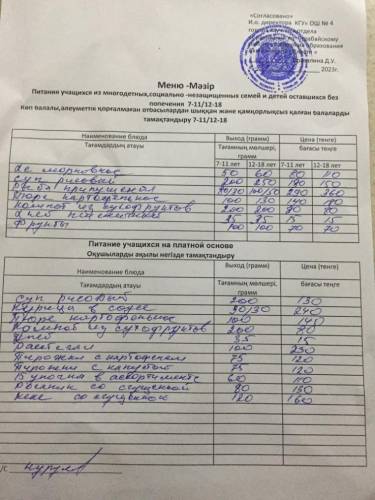 «Согласовано»
И.о. директора КГУ« ОШ № 4
2023г.
Меню -Мәзір
Питание учащихся из многодетных,социально -незащищенных семей и детей оставшихся без
попечения 7-11/12-18
Көп балалы,әлеуметтік қорғалмаған отбасылардан шыққан және қамқорлықсыз қалған балаларды
тамақтандыру 7-11/12-18
Наименование блюда Выход (грамм) Цена (тенге)
Тағамдардың атауы Тағамның мөлшері, грамм бағасы теңге
7-11 лет 12-18 лет 7-11 лет 12-18 лет
морковное 50 60 80 110
Суп рисовый 200 250 130 150
Рыба припущенная
Пюре картофельное 100 130 140 180
Компот из сухофруктов 200 200 80 80
Хлеб пшеничный 35 35 15 15
Фрукты 100 100 70 70
Питание учащихся на платной основе
Оқушыларды ақылы негізде тамақтандыру
Наименование блюда Выход (грамм) Цена (тенге)
Тағамдардың атауы Тағамның мөлшері, грамм бағасы теңге
Суп рисовый 200 130
Курица в соусе 90/30 240
Пюре картофельное 100 140
Компот из сухофруктов 200 80
Хлеб 35 15
Расстегай 100 230
Пирожки с картофелем 75 120
Пирожки с капустой 75 120
Булочки в ассортименте 60 110
Рогалик со сгущенкой 80 130
Кекс со сгущенкой 120 160